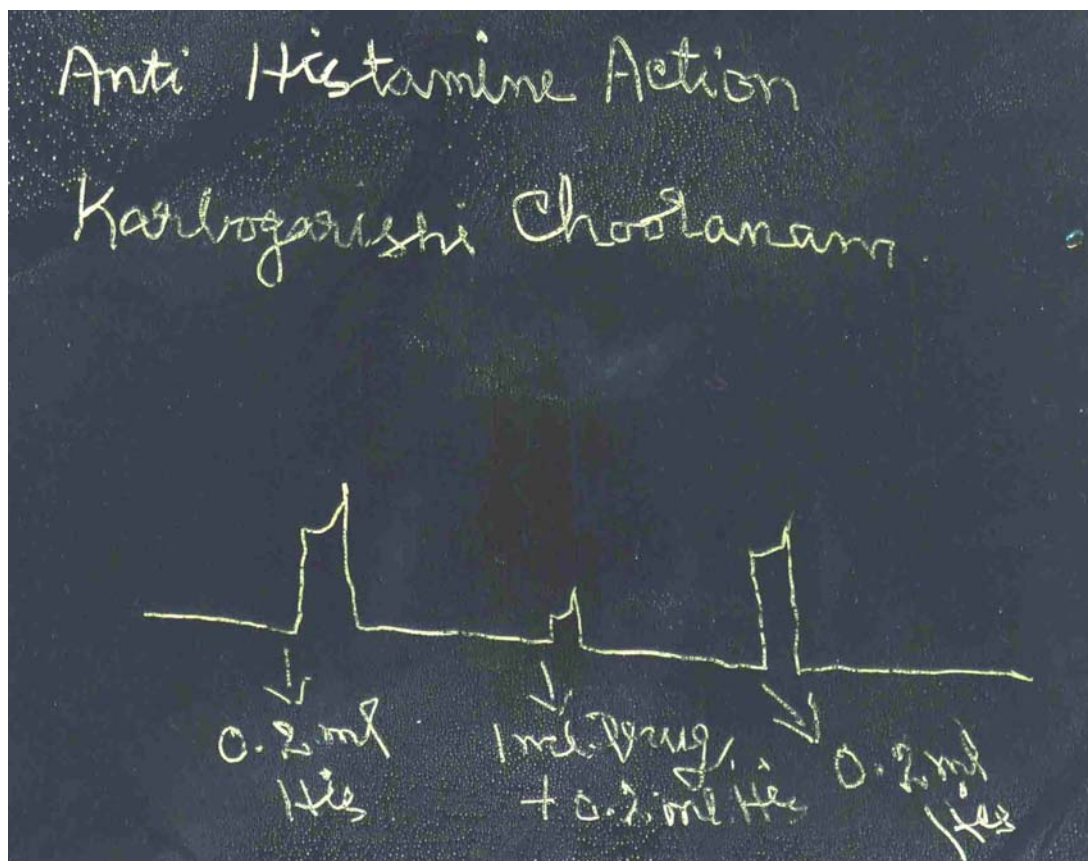 Anti Histamine Action
Karbogarishi Chooranam
0.2 ml
His
1 ml. Drug
+ 0.2 ml His
0.2 ml
His